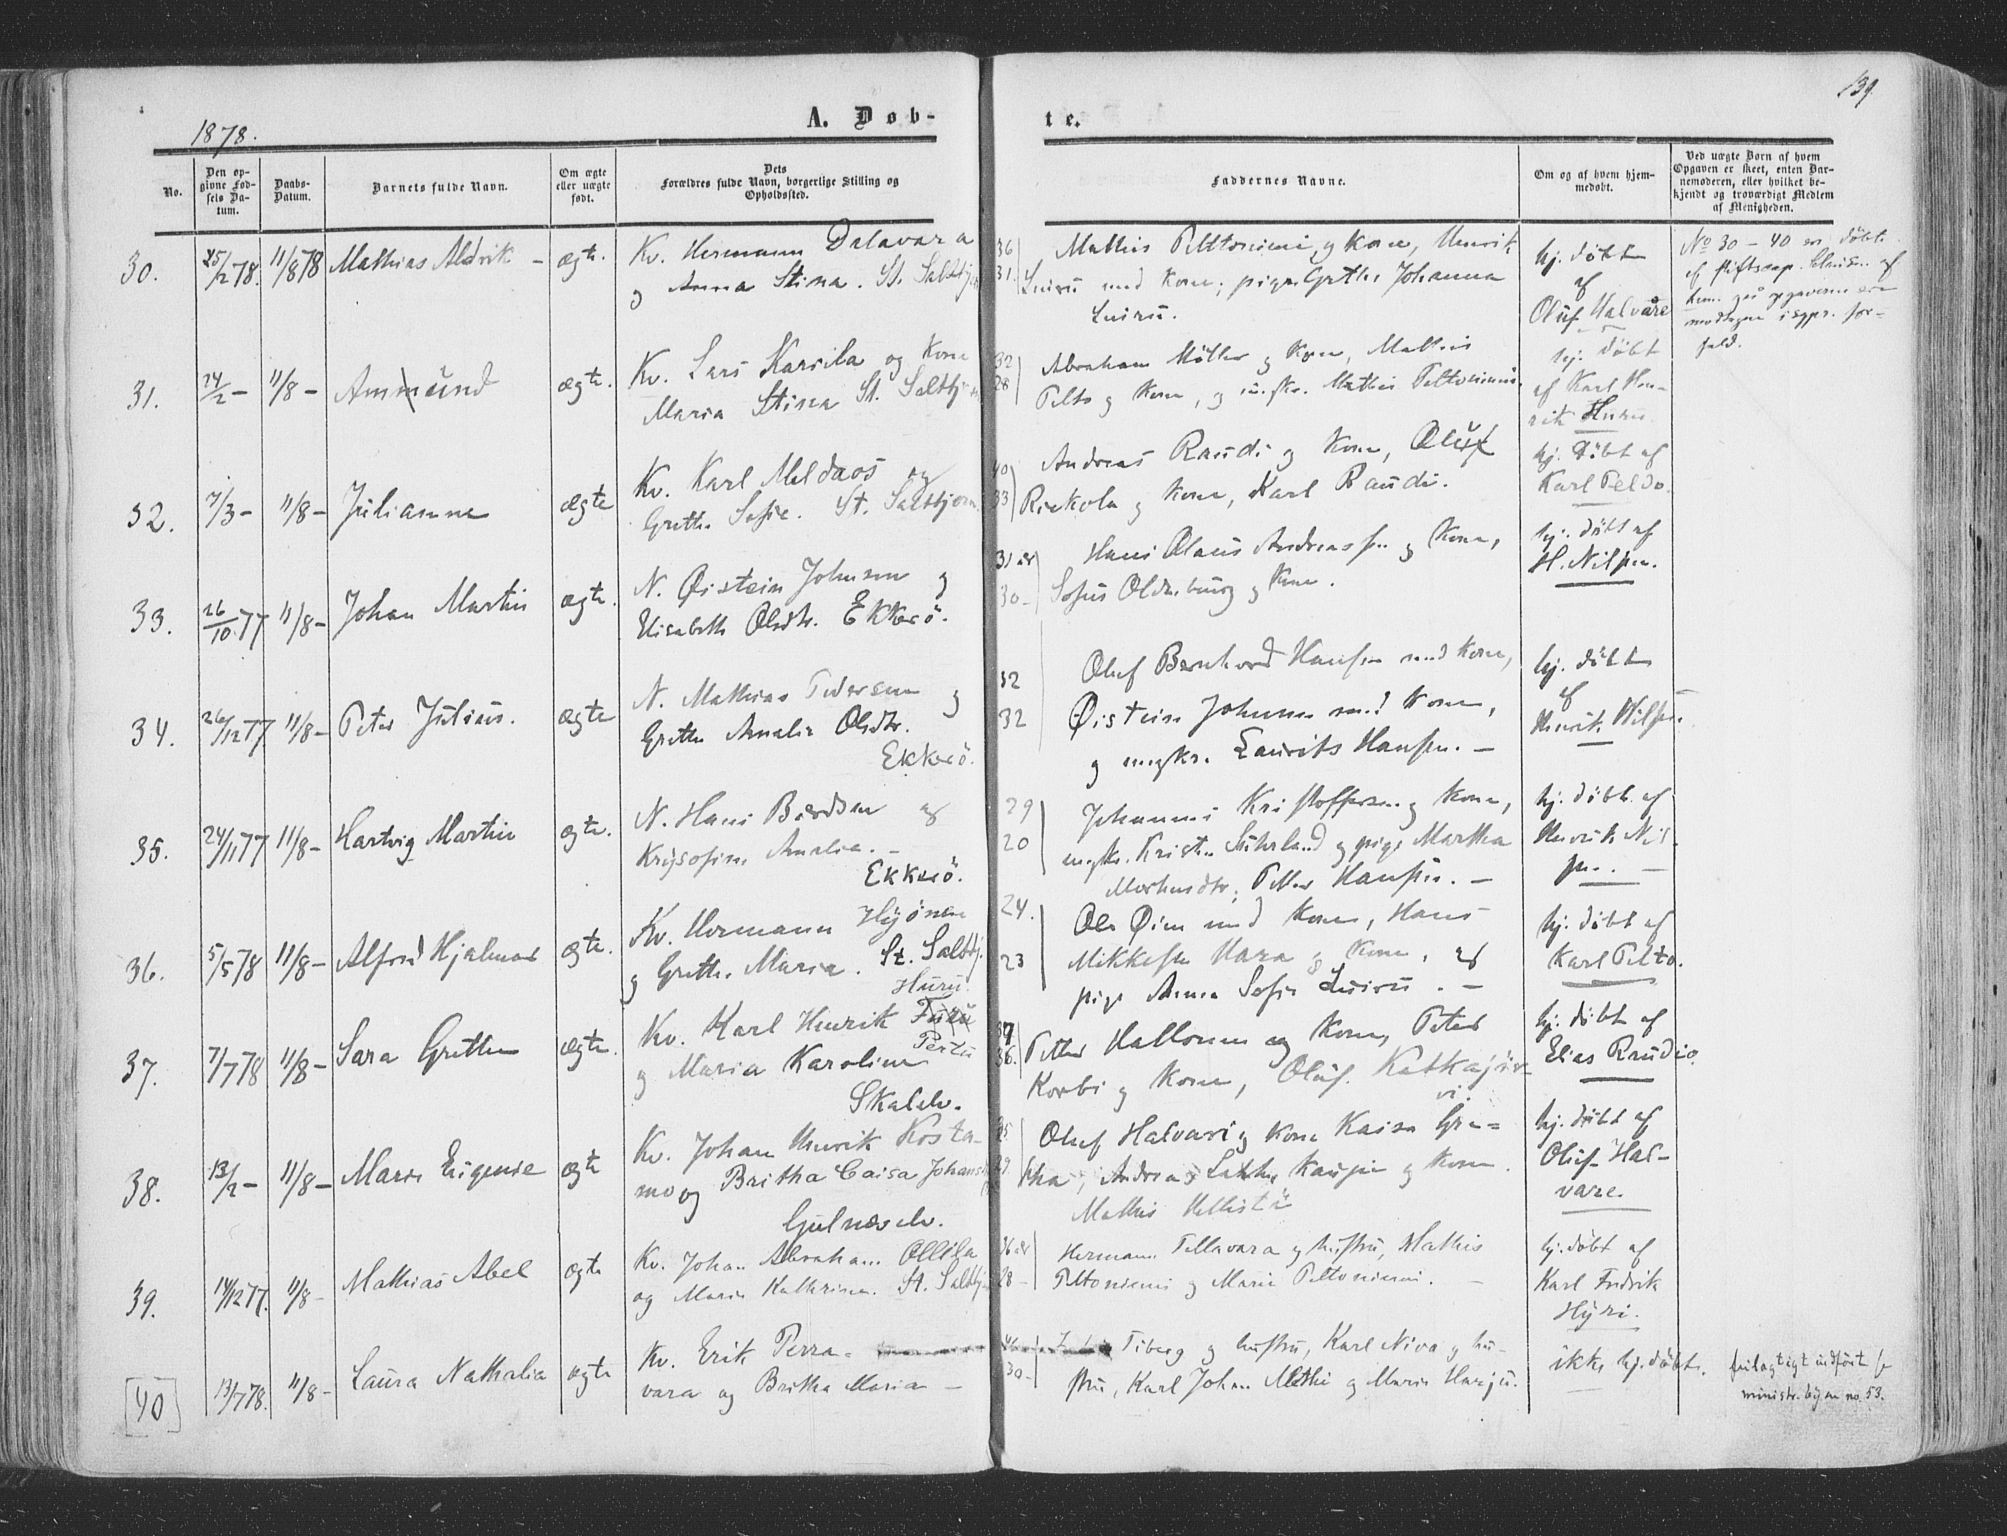 139.
1878.
A. Døb-
te.
No.
Den op-
givne Fød-
sels Da-
tum.
Daabs-
Datum.
Barnets fulde Navn.
Om ægte
eller uægte
født.
Dets
Forældres fulde Navn, borgerlige Stilling og
Opholdssted.
Faddernes Navne.
Om og af hvem hjem-
medøbt.
Ved uægte Børn af hvem
Opgaven er skeet, enten Bar-
nemoderen, eller hvilket be-
kjendt og troværdigt Medlem
af Menigheden.
30. 25/2 78. 11/8 78 Mathias Aldrik – ægte.
Kv. Hermann Dalavara
og Anna Stina. St. Saltfj
36 Mathis Peltoniemi og Kone, Henrik
31. Luiru med Kone, pige Grethe Johanna
Luiru.
hj. døbt
af
Oluf Halvare
No 30 – 40 er døbt
af
31. 24/2 – 11/8 – Ammund ægte.
Kv. Lars Karsila og Kone
Maria Stina St. Saltfj
32 Abraham Møller og Kone, Mathis
28 Pelto og Kone, og ungkr. Mathis Peltoniemi.
hj. døbt
af Karl Hen-
rik Huru.
32. 7/3 – 11/8 – Julianne ægte
Kv. Karl Meldaos og
Grethe Sofie. St. Saltfjorn
40 Andreas Raudi og Kone, Oluf
33 Riekola og Kone, Karl Raudi.
hj. døbt af
Karl Peldo.
33. 26/10 77 11/8 – Johan Martin ægte.
N. Øistein Johnsen og
Elisabeth Olsdtr. Ekkerö.
31 år Hans Olaus Andreassen og Kone,
30 – Sofus Oldenburg og Kone.
hj. døbt af
H. Nilsen.
34. 26/12 77 11/8 – Peter Julius. ægte
N. Mathias Pedersen og
Grethe Amalie Olsdtr.
Ekkerö.
32 Oluf Bernhard Hansen med Kone,
32 Øistein Johnsen med Kone,
og ungkr. Laurits Hansen. –
hj. døbt
af
Henrik Nilsen.
35. 24/11 77 11/8 – Hartvig Martin ægte.
N. Hans Bærdsen og
Krysofine Amalia. –
Ekkerö.
29 Johannes Kristoffersen og Kone,
20 ungkr. Kristen Suhrland og pige Martha
Morhensdtr, Petter Hansen. –
hj. døbt af
Henrik Nil-
sen. –
36. 5/5 78 11/8 – Alfred Hjalmar ægte.
Kv. Hermann Hyönen
og Grethe Maria. St. Saltfj.
24. Ole Øien med Kone, Hans
23 Mikkelsen Hara og Kone, og
pige Anna Sofie Luiru. –
hj. døbt af
Karl Pelto.
37. 7/7 78 11/8 – Sara Grethe ægte.
Huru.
Kv. Karl Henrik Furu
Pertu
og Maria Karoline
Skalelv.
36. Petter Hallonen og Kone, Peter
Korbi og Kone, Oluf Katkajär-
vi.
hj. døbt af
Elias Raudio.
38. 13/2 – 11/8 – Marie Eugenie ægte
Kv. Johan Henrik Kosta-
mo og Britha Caisa Johans
Gulnæselv.
Oluf Halvari og Kone Kaisa Gre-
tha, Andreas Kaupin og Kone.
Mathis
hj. døbt af
Oluf Hal-
vare.
39. 14/12 77. 11/8 – Mathias Abel ægte
Kv. Johan Abraham Ollila
og Maria Kathrina. St. Saltfj
36 år Hermann Tellavara og hustru, Mathis
28 – Peltoniemi og Marie Peltoniemi. –
hj. døbt af
Karl Fredrik
Hyri.
[40] 13/7 78. 11/8 – Laura Nathalia ægte
Kv. Erik Perra-
vara og Britha Maria –
Tiberg og hustru, Karl Niva og hu-
30 – stru, Karl Johan Mathi og Maria Harju.
ikke hj.døbt.
feilagtigt indført fr
ministr.bogen no. 53.